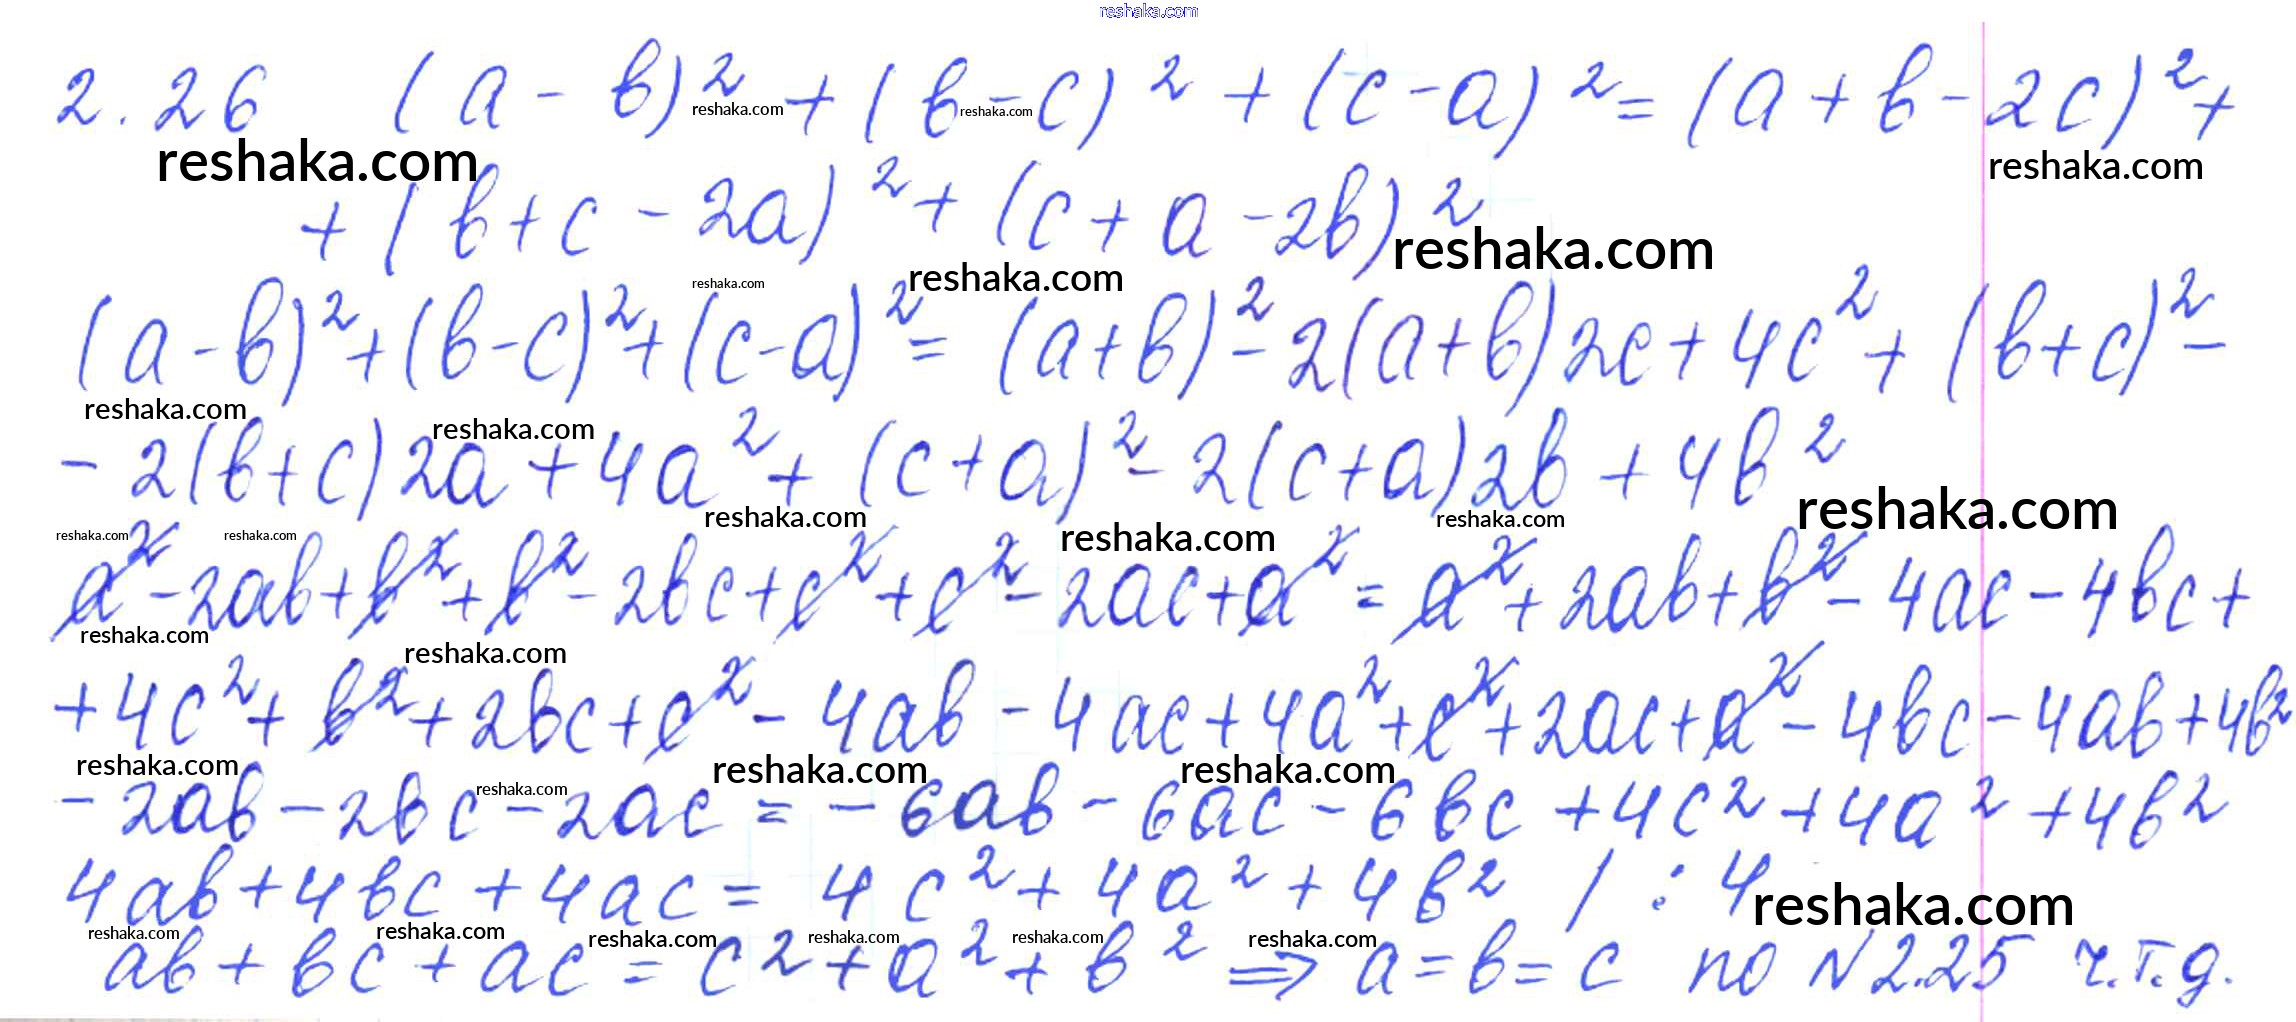 reshaka.com
2.26 (a - b)² + (b - c)² + (c - a)² = (a + b - 2c)² +
reshaka.com reshaka.com reshaka.com reshaka.com
+ (b + c - 2a)² + (c + a - 2b)²
reshaka.com reshaka.com reshaka.com
(a - b)² + (b - c)² + (c - a)² = (a + b)² - 2(a + b)2c + 4c² + (b + c)² -
reshaka.com reshaka.com
- 2(b + c)2a + 4a² + (c + a)² - 2(c + a)2b + 4b²
reshaka.com reshaka.com reshaka.com reshaka.com reshaka.com reshaka.com
a² - 2ab + b² + b² - 2bc + c² + c² - 2ac + a² = a² + 2ab + b² - 4ac - 4bc +
reshaka.com reshaka.com
+ 4c² + b² + 2bc + c² - 4ab - 4ac + 4a² + c² + 2ac + a² - 4bc - 4ab + 4b²
reshaka.com reshaka.com reshaka.com reshaka.com
- 2ab - 2bc - 2ac = - 6ab - 6ac - 6bc + 4c² + 4a² + 4b²
4ab + 4bc + 4ac = 4c² + 4a² + 4b² / : 4
reshaka.com
reshaka.com reshaka.com reshaka.com reshaka.com reshaka.com reshaka.com
ab + bc + ac = c² + a² + b² => a = b = c по N 2.25 ч.т.д.